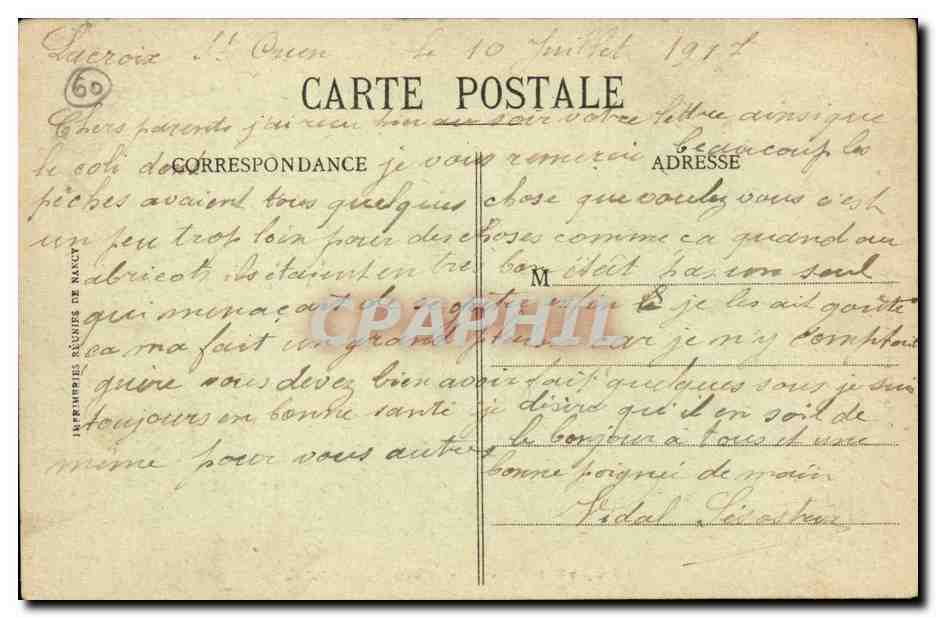 Lacroix St Ouen le 10 Juillet 1917
60
CARTE POSTALE
Chers parents j'ai recu hier au soir votre lettre ainsi que
le coli dont je vous remerci beaucoup les
CORRESPONDANCE
ADRESSE
pêches avaient tous quelques chose que voulez vous c'est
un peu trop loin pour des choses comme ca quand au
abricots ils étaient en très bon était pas un seul
M
qui menaçait de se gater enfin je les ait goûté
ca ma fait un grand plaisir car je n'y comptait
guire vous devez bien avoir fait quelques sous je suis
toujours en bonne santé je désire qu'il en soit de
même pour vous autres le bonjour à tous et une
bonne poignée de main
Vidal
IMPRIMERIES RÉUNIES DE NANCY
CPAPHIL